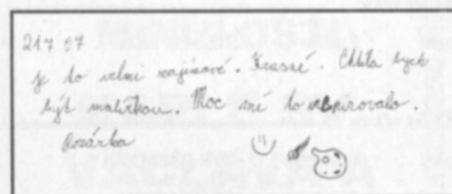 217 07
je to velmi zajímavé. Krasné. Chtěla bych
být malířkou. Moc mě to inspirovalo.
Rozárka